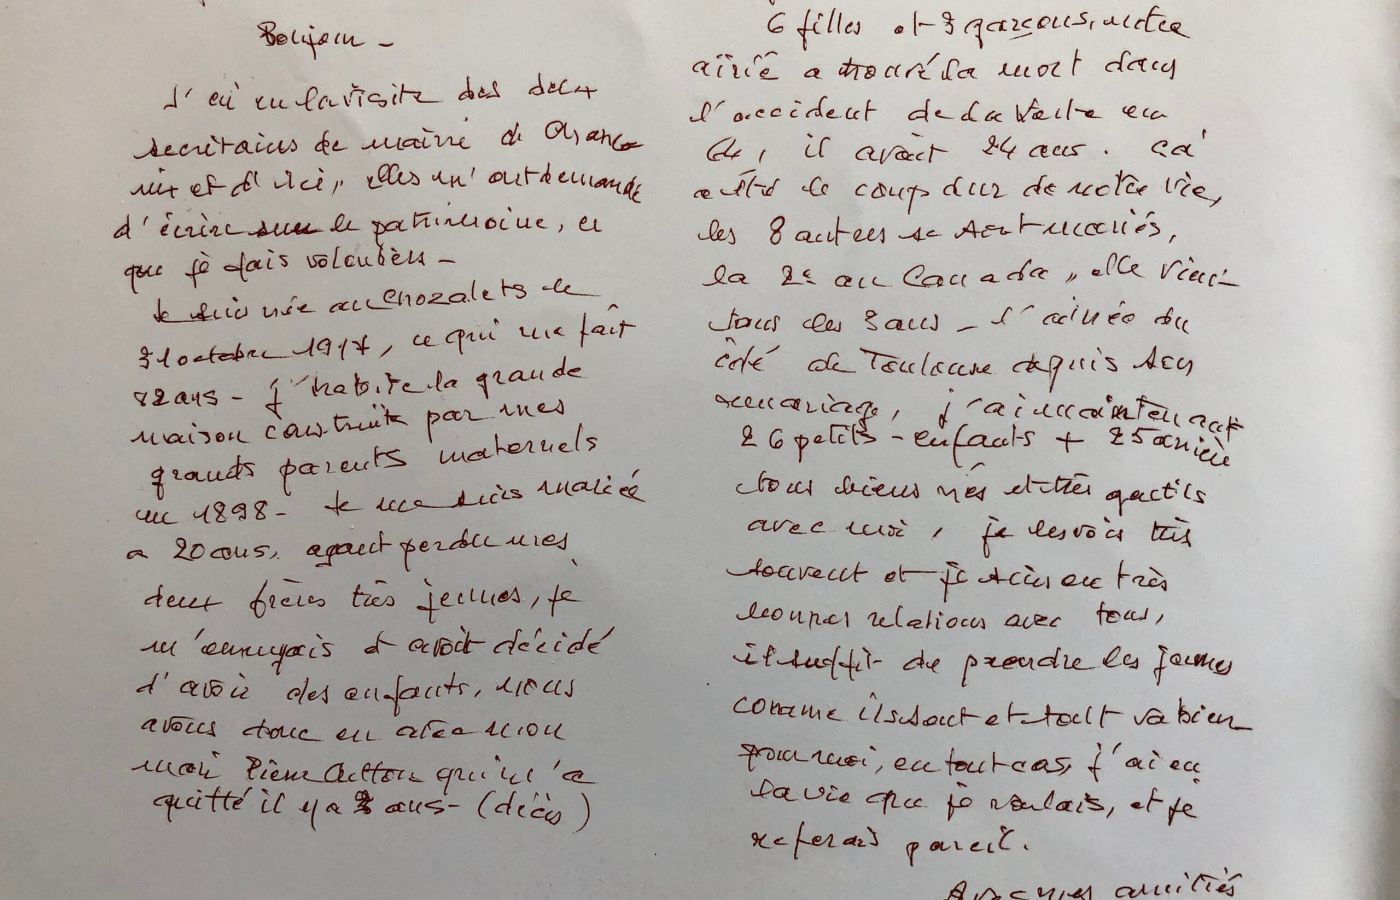 Bonjour -
J'ai eu la visite des deux
secrétaires de mairie de
et d'ici, elles m'ont demandé
d'écrire sur le patrimoine, ce
que je fais volontiers -
Je suis née au Chozalets le
31 octobre 1917, ce qui me fait
82 ans - j'habite la grande
maison construite par mes
grands parents maternels
en 1898 - Je me suis mariée
a 20 ans, ayant perdu mes
deux frères très jeunes, je
m'ennuyais et avait décidé
d'avoir des enfants, nous
avons donc eu avec mon
mari Pierre qui m'a
quitté il y a ans - (décès)
6 filles et 3 garçons, notre
ainé a trouvé la mort dans
l'accident de la Verte en
64, il avait 24 ans. ca
a été le coup dur de notre vie,
les 8 autres se sont mariés,
la 2e au Canada, elle vient
tous les 3 ans - l'ainée du
côté de Toulouse depuis son
remariage, j'ai maintenant
26 petits-enfants + 25 arrière
tous biens nés et très gentils
avec moi, je les vois très
souvent et je suis en très
bonnes relations avec tous,
il suffit de prendre les jeunes
comme ils sont et tout va bien
pour moi, en tout cas, j'ai eu
la vie que je voulais, et je
referais pareil.
Avec mes amitiés